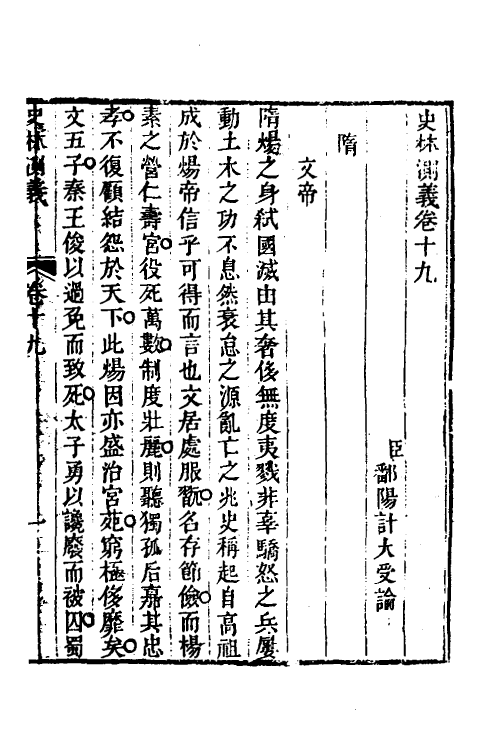 史林測義卷十九
臣鄱陽計大受論
隋
文帝
隋煬之身弒國滅由其奢侈無度夷戮非辜驕怒之兵屢
動土木之功不息然衰怠之源亂亡之兆史稱起自高祖
成於煬帝信乎可得而言也文居處服翫名存節儉而楊
素之營仁壽宮役死萬數制度壯麗則聽獨孤后嘉其忠
孝不復顧結怨於天下此煬因亦盛治宮苑窮極侈靡矣
文五子秦王俊以過免而致死太子勇以讒廢而被囚蜀
史林測義 卷十九